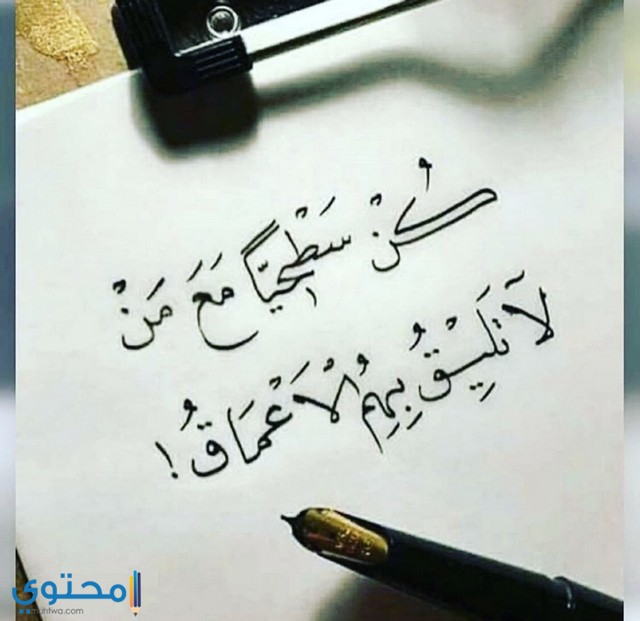 كُنْ سَطْحِيّاً مَعَ مَنْ
لَا تَلِيْقُ بِهِمُ الْأَعْمَاقُ !
محتوى
muhtwa.com